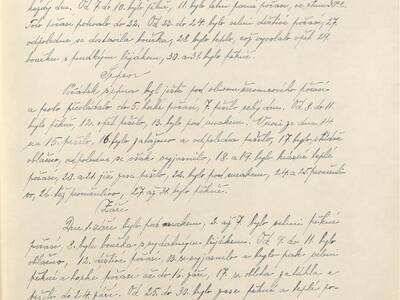 každý den. Od 7. do 10. bylo pěkné, 11. bylo
Toto počasí potrvalo do 22. Od 22. do 24. bylo velmi deštivé počasí, 27.
odpoledne se dostavila bouřka, 28. bylo teplo, což vyvolalo opět 29.
bouřku s prudkým lijákem, 30. a 31. bylo pěkně.
Srpen
Počátek srpna byl ještě pod vlivem červencového počasí
a proto přicházelo do 5. horké počasí, 7. pršelo celý den. Od 8. do 11.
bylo pěkně, 12. opět pršelo, 13. bylo pod mrakem. V noci ze dne 14.
na 15. pršelo, 16. bylo zataženo a odpoledne pršelo, 17. bylo
oblačno, odpoledne se však vyjasnilo, 18. a 19. bylo krásné teplé
počasí, 20. a 21. již zase pršelo, 22. bylo pod mrakem, 24. a 25. proměnli-
vo, 26. též proměnlivo, 27. až 31. bylo pěkně.
Září
Dne 1. září bylo pod mrakem, 2. až 7. bylo velmi pěkné
počasí, 8. byla bouřka s vydatným lijákem. Od 9. do 11. bylo
oblačno, 12. deštivé počasí, 13. se vyjasnilo a bylo pak velmi
pěkné a horké počasí až do 16. září, 17. se oblaha zatáhla a
pršelo do 24. září. Od 25. do 30. bylo zase pěkné a teplé po-